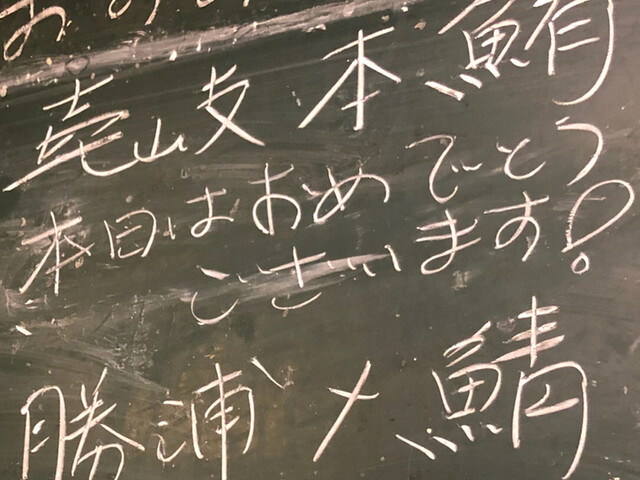 壱岐 本鮪
本日はおめでとう
ございます!
勝浦 〆鯖